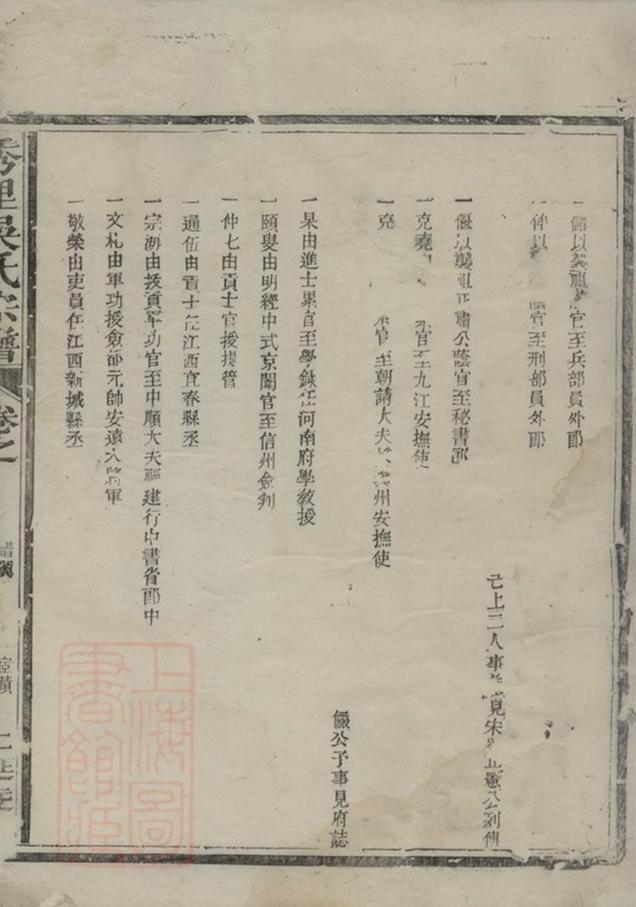 一儼以襲祖 官至兵部員外郎
一伴以 官至刑部員外郎
已上二人事 見宋史正肅公列傳
一偃以襲祖正肅公蔭官至秘書郎
一克堯 官至九江安撫使
一克 官至朝請大夫 州安撫使
儼公子事見府誌
一杲由進士累官至學錄任河南府學教授
一頤叟由明經中式京闈官至信州僉判
一仲七由貢士官授提管
一通伍由貢士任江西宜春縣丞
一宗海由拔貢軍功官至中順大夫福建行中書省郎中
一文札由軍功授僉部元帥安遠大將軍
一敬榮由吏員任江西新城縣丞
秀里吳氏宗譜
卷之一
上海圖書館藏